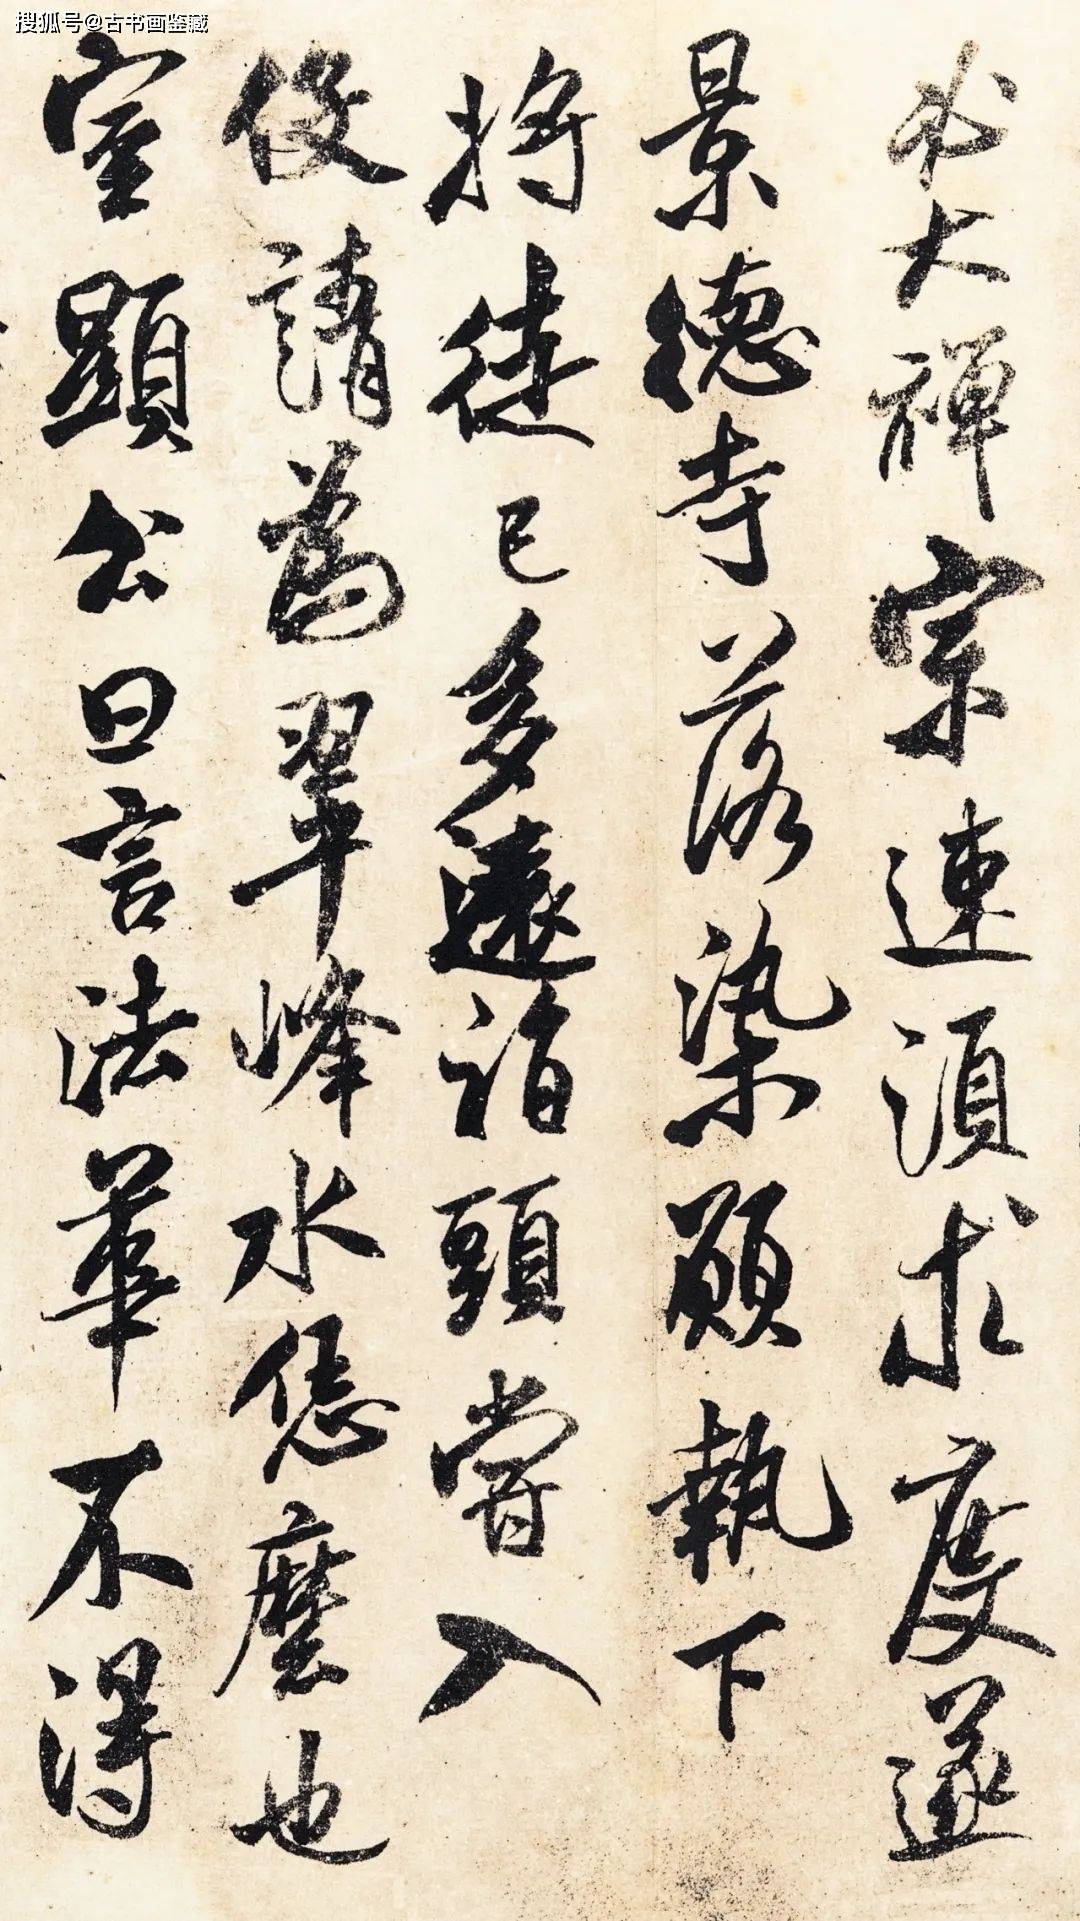 搜狐号@古书画鉴藏
大禅宗連須求度遂
景德寺落染願執下
將徒已多遠詣頭嘗入
俊請為翠峰水恁麼也
室顯公曰言法華不得